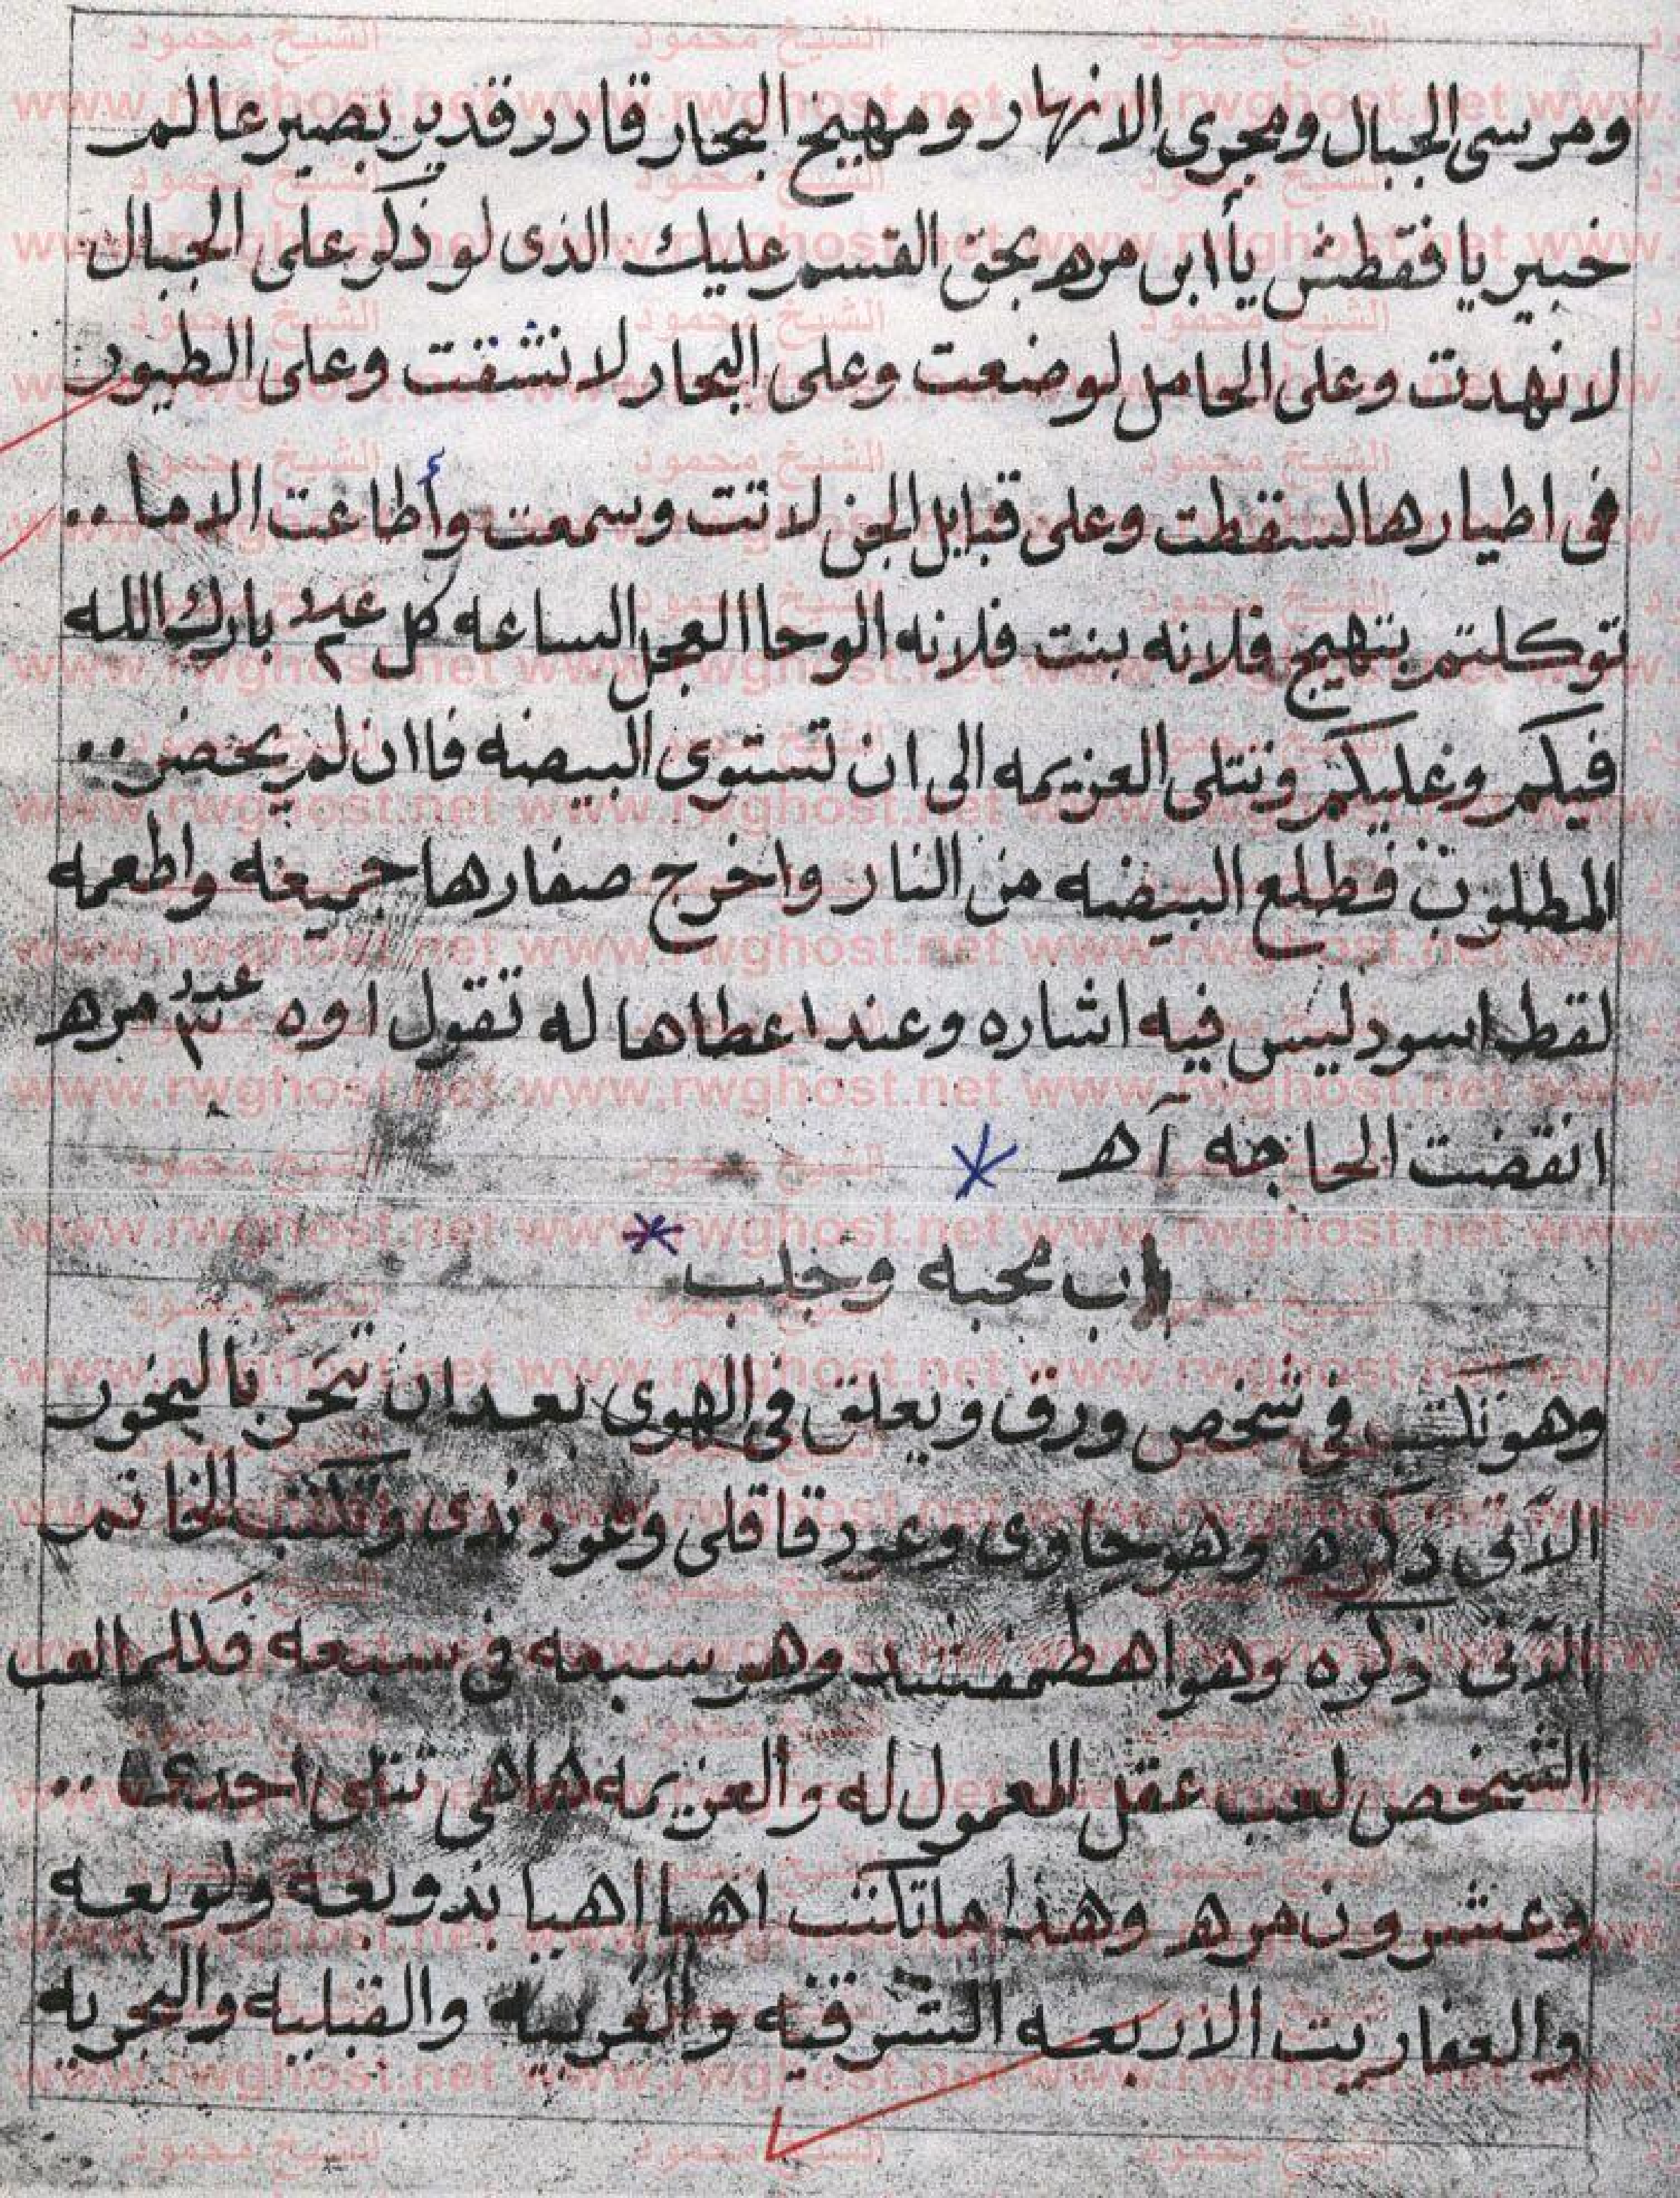 ومرسى الجبال ومجرى الانهار ومهيج البحار قادر قدير بصير عالم
خبير يا فقطش يأ ابن مره بحق القسم عليك الذى لو ذكر على الجبال
لانهدت وعلى الحامل لوضعت وعلى البحار لانشفت وعلى الطيور
فى اطيارها لسقطت وعلى قبايل الجن لاتت وسمعت وأطاعت الاما ..
توكلتم بتهيج فلانه بنت فلانه الوحا العجل الساعه كل بارك الله
فيكم وعليكم وتتلى العزيمه الى ان تستوى البيضه فاان لم يحضر ..
المطلوب فطلع البيضه من النار واخرج صفارها جميعه واطعمه
لقط اسود ليس فيه اشاره وعند اعطاها له تقول اوه عدد ٣ مره
انقضت الحاجه آه
باب محبه وجلب
وهو تكتب فى شخص ورق ويعلق فى الهوى بعد ان تبخر بالبخور
الآتى ذكره وهو جاوى وعود قاقلى وعود ندى وتكتب الخاتم
الآتى ذكره وهو اهطمفشد وهو سبعه فى سبعه فكلما لعب
الشخص لعب عقل المعمول له والعزيمه هاهى تتلى احدى ..
وعشرون مره وهذا ماتكتب اهيا اهيا بدوبعه ولوبعه
والعفاريت الاربعه الشرقيه والغربيه والقبليه والبحريه
الشيخ محمود
www.rwghost.net